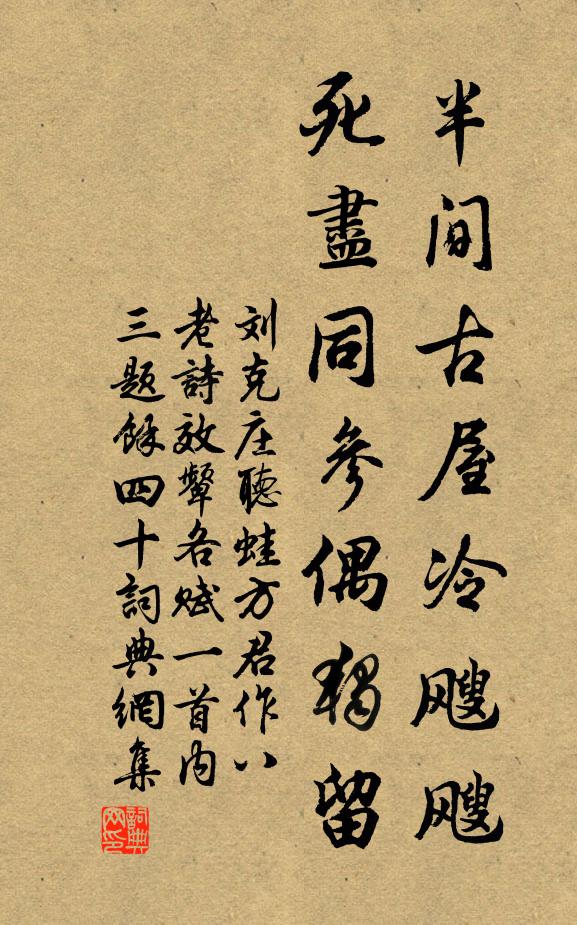 半间古屋冷飕飕
死盡同參偶独留
刘克庄聽蛙方君作八
老詩效颦各赋一首内
三题餘四十詞典網集
詞典
网印